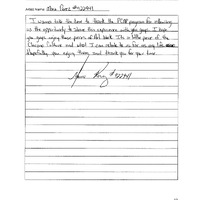 Artist Name: Jose Perez #922941
I wanna take the time to thank the PCAP program for allowing
us the opportunity to share this experience with you guys. I hope
you guys enjoy these pieces of Art work. Its a little piece of the
Chicano Culture and what I can relate to as far as my life.
Hopefully, you enjoy them, and thank you for your time.
#922941